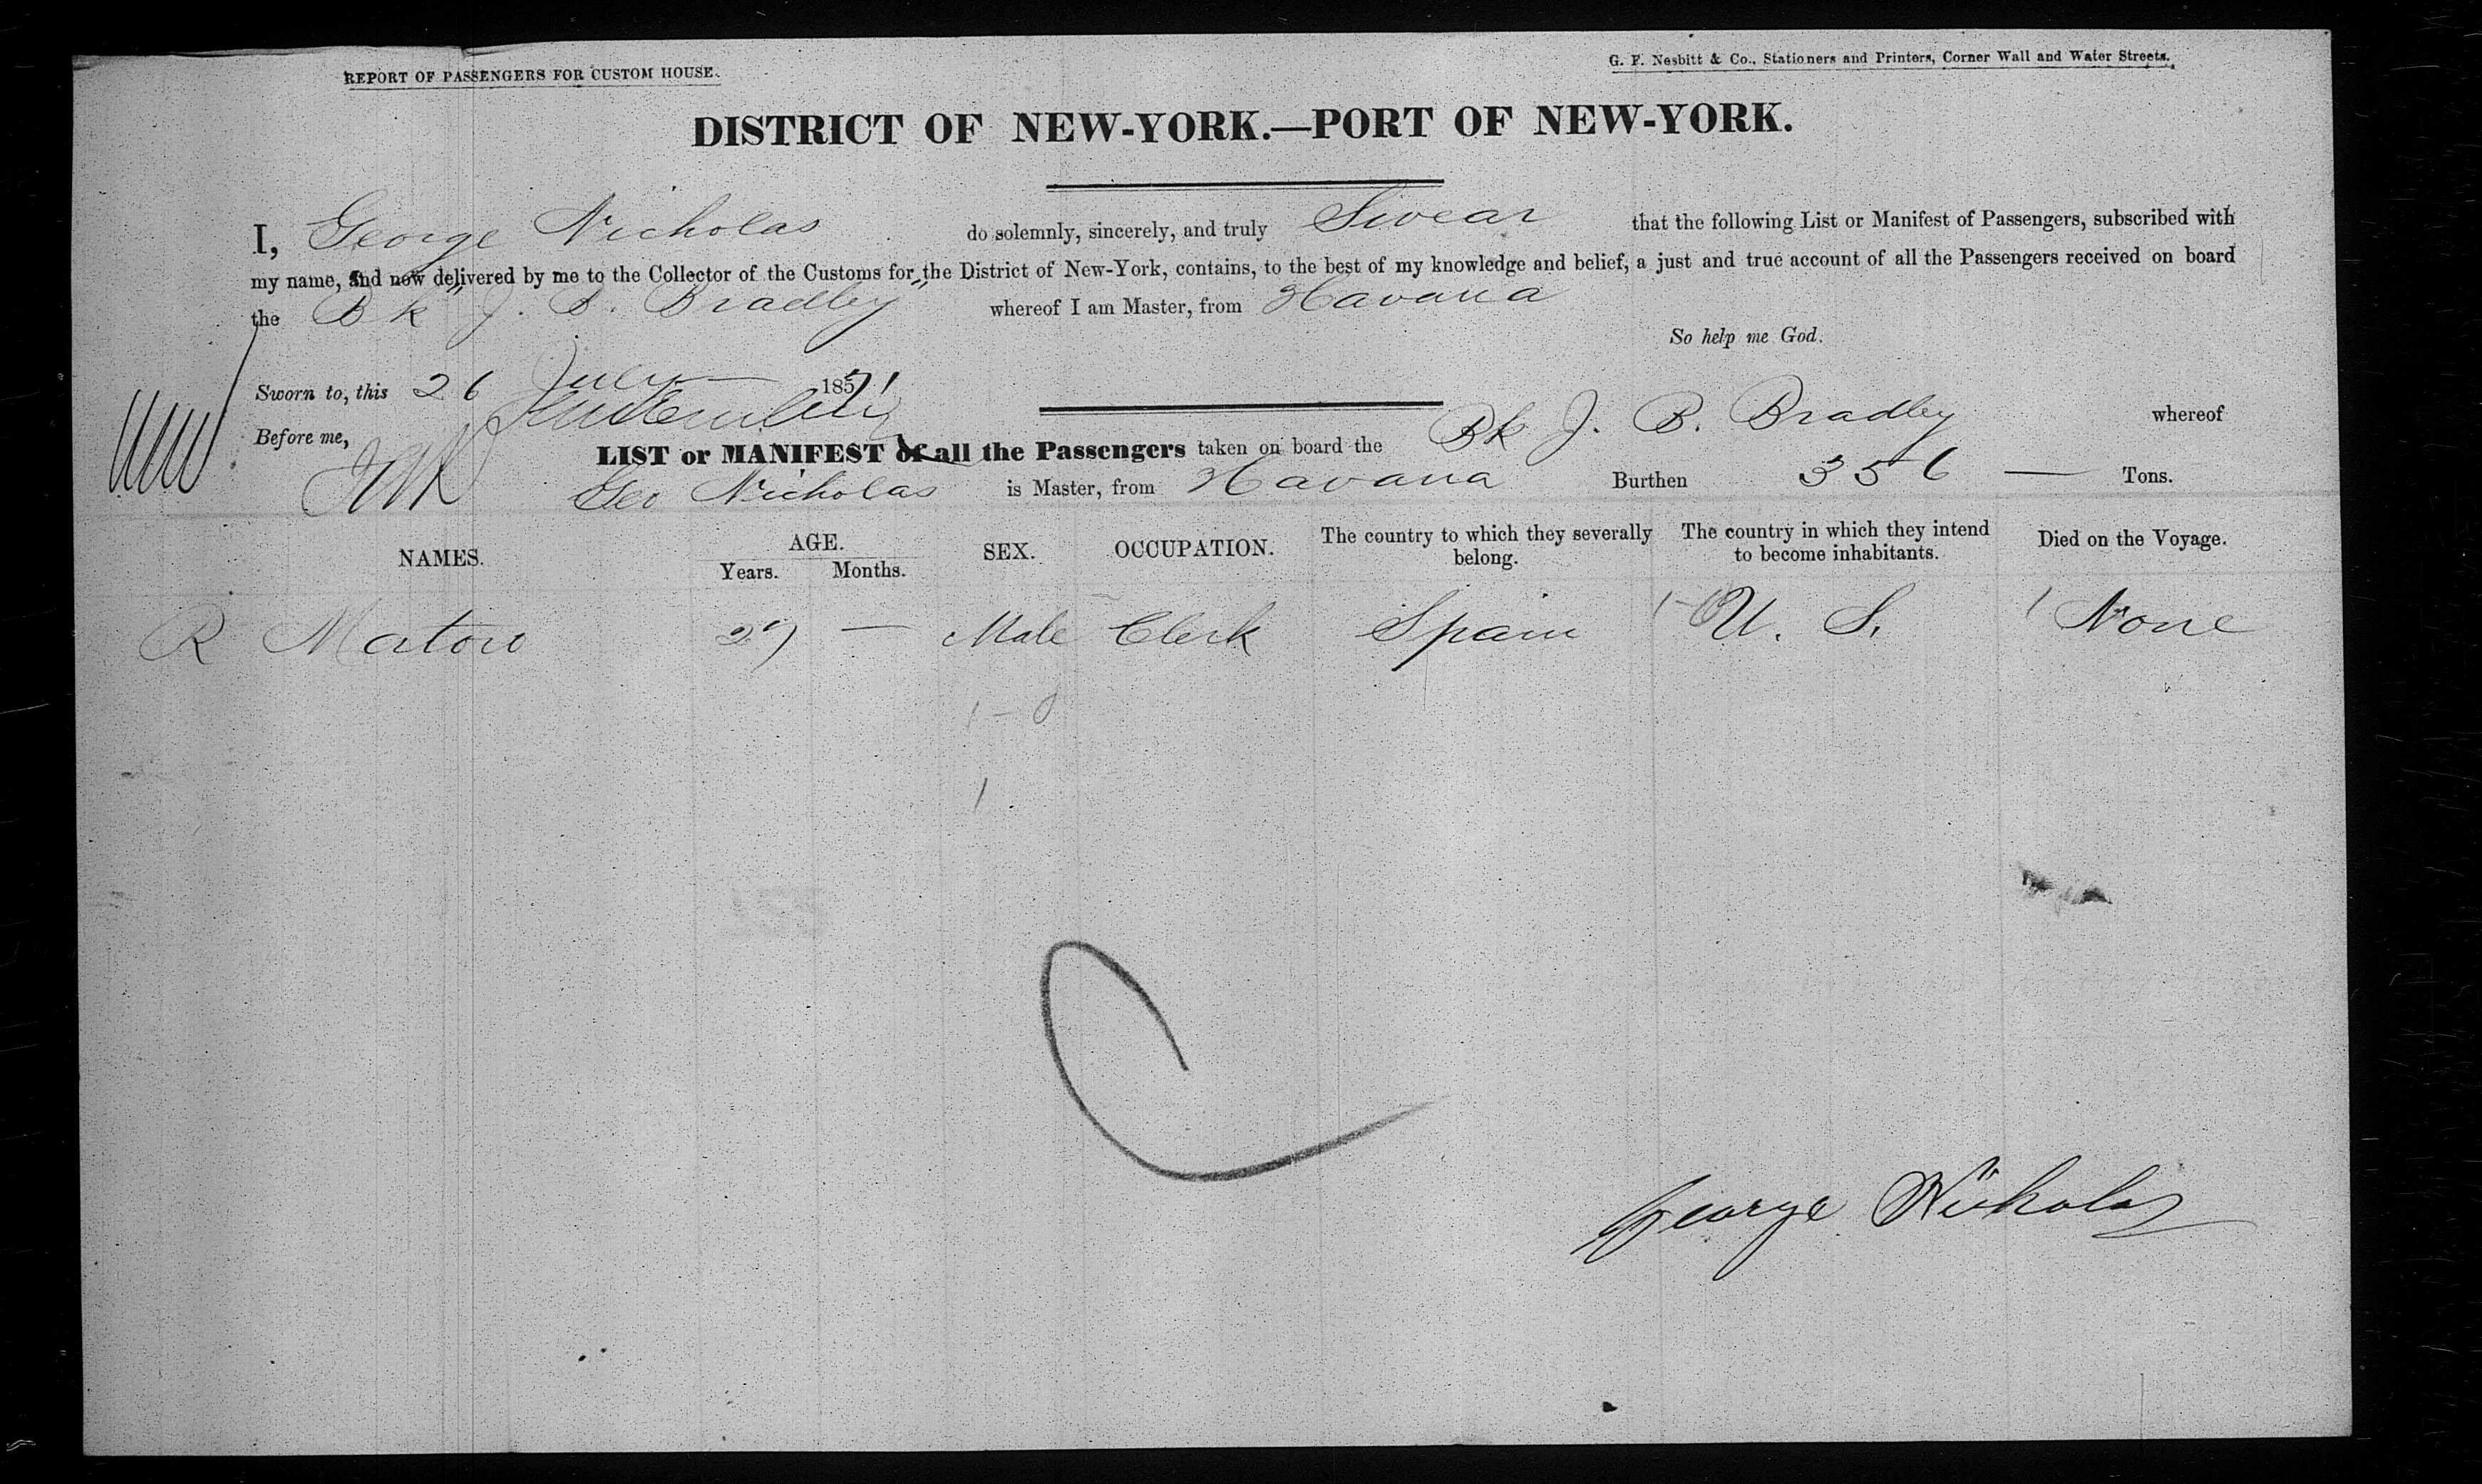 REPORT OF PASSENGERS FOR CUSTOM HOUSE.
G. F. Nesbitt & Co., Stationers and Printers, Corner Wall and Water Streets.
DISTRICT OF NEW-YORK.—PORT OF NEW-YORK.
I, George Nicholas do solemnly, sincerely, and truly Swear that the following List or Manifest of Passengers, subscribed with
my name, and now delivered by me to the Collector of the Customs for the District of New-York, contains, to the best of my knowledge and belief, a just and true account of all the Passengers received on board
the Bk "J. B. Bradley" whereof I am Master, from Havana
So help me God.
Sworn to, this 26 July 1871
Before me,
LIST or MANIFEST of all the Passengers taken on board the Bk J. B. Bradley whereof
Geo Nicholas is Master, from Havana Burthen 356 — Tons.
NAMES. AGE. Years. Months. SEX. OCCUPATION. The country to which they severally belong. The country in which they intend to become inhabitants. Died on the Voyage.
R Maton 27 — Male Clerk Spain 1-0 U. S. 1 None
1-0
1
George Nicholas